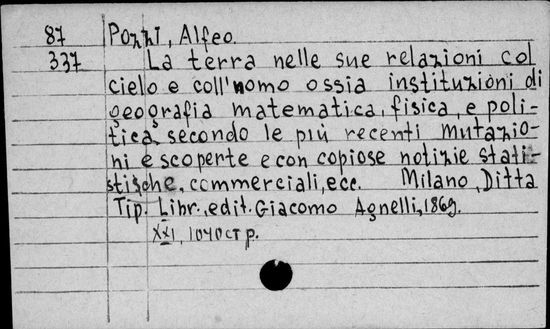 87 Pozzi, Alfeo.
337 La terra nelle sue relazioni col
cielo e coll'uomo ossia instituzioni di
geografia matematica, fisica, e poli-
tica, secondo le più recenti mutazio-
ni e scoperte e con copiose notizie stati-
stische, commerciali, ecc. Milano, Ditta
Tip. Libr. edit. Giacomo Agnelli, 1869.
XXI, 1040 стр.